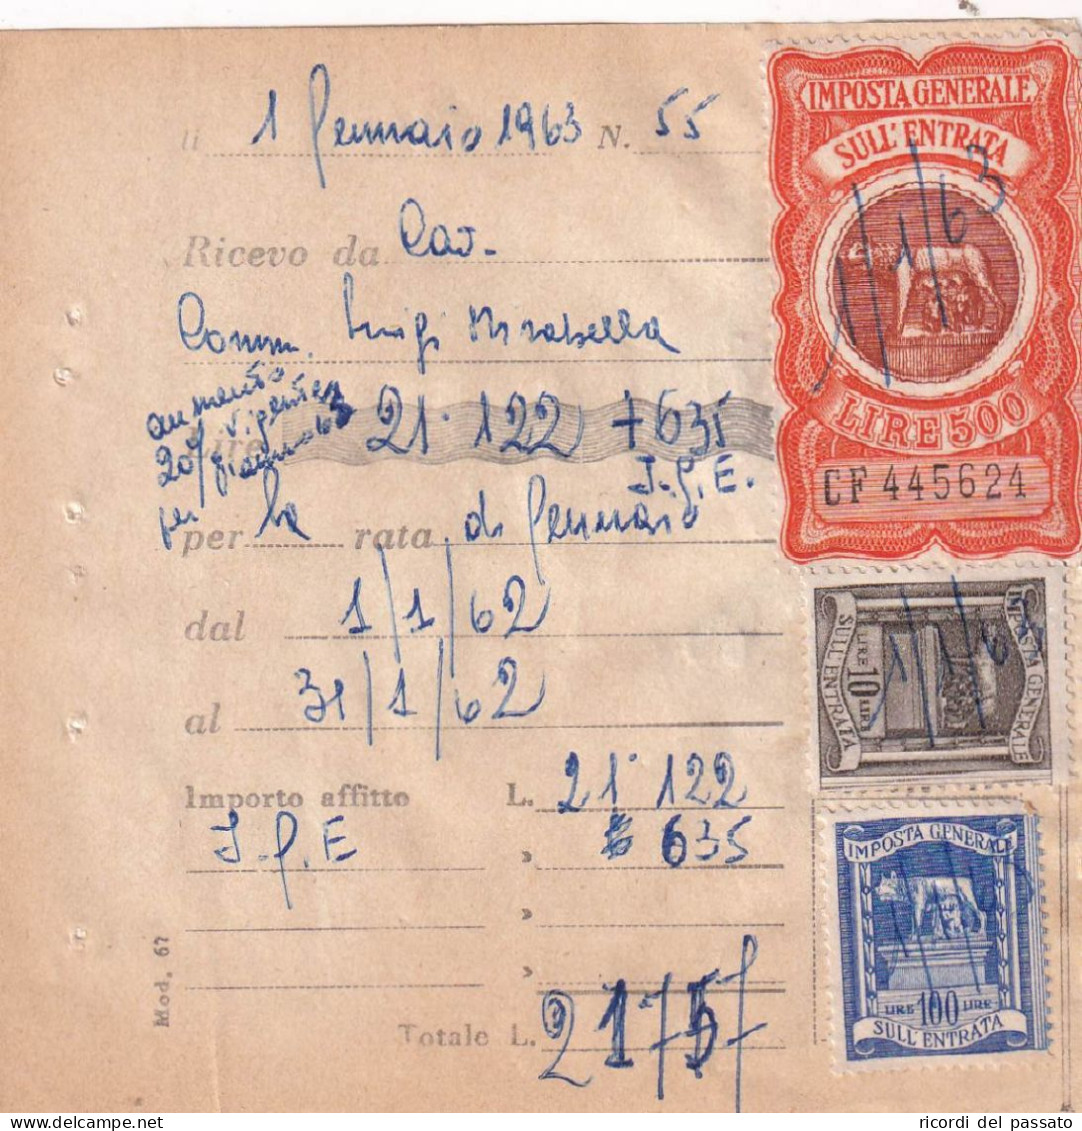 li 1 Gennaio 1963 N. 55
Ricevo da Cav.
Comm. Luigi Mirabella
aumento
20% vigente
per gennaio 63
Lire 21.122 + 635
I.G.E.
per la rata di Gennaio
dal 1/1/62
al 31/1/62
Importo affitto L. 21.122
I.G.E » 635
»
»
Totale L.
Mod. 67
IMPOSTA GENERALE
SULL'ENTRATA
1/1/63
LIRE 500
CF 445624
IMPOSTA GENERALE
LIRE 10 LIRE
SULL'ENTRATA
1/1/63
IMPOSTA GENERALE
LIRE 100 LIRE
SULL'ENTRATA
ricordi del passato